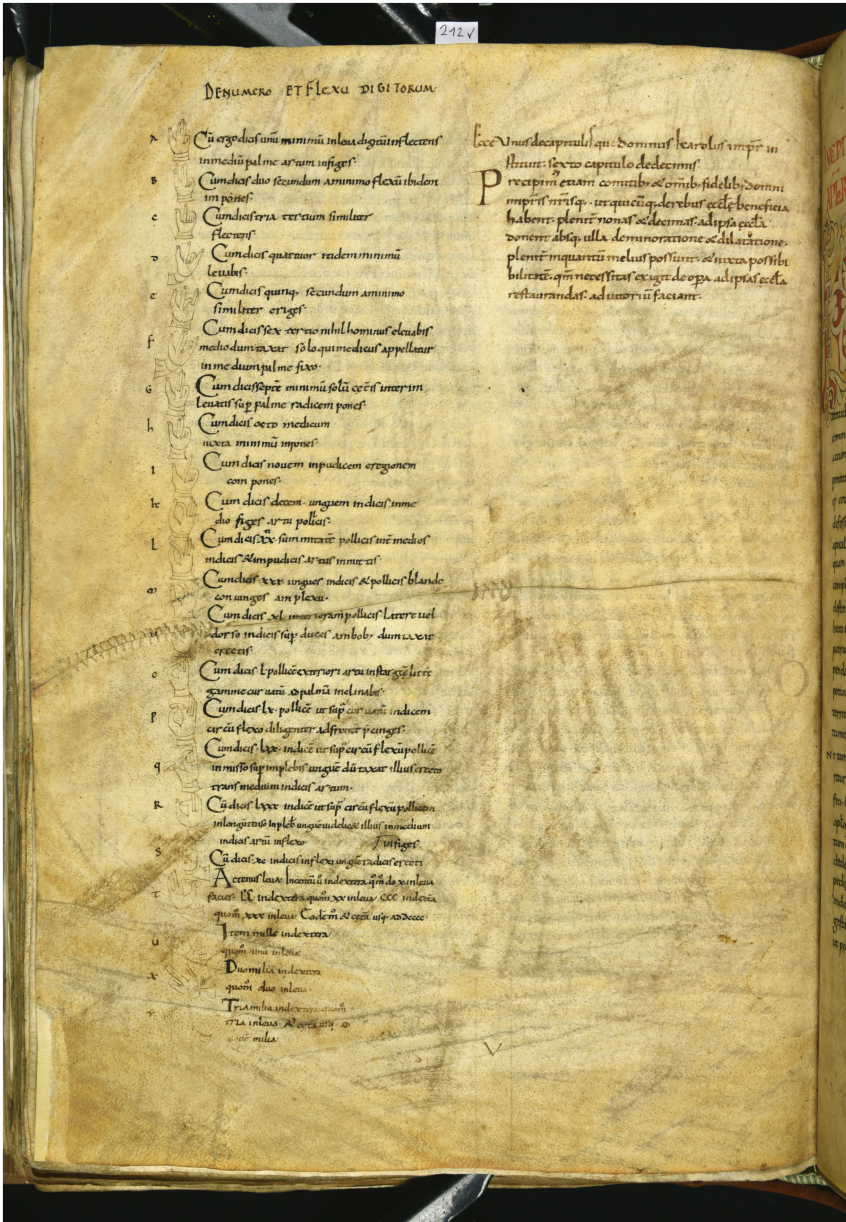 212v
DE NUMERO ET FLEXU DIGITORUM
A Cū ergo dicis unū minimū in leva digitū inflectens
in mediū palme artum infiges·
B Cum dicis duo secundum a minimo flexū ibidem
impones·
C Cum dicis tria tertium similiter
flectens·
D Cum dicis quattuor itidem minimū
levabis·
E Cum dicis quinq; secundum a minimo
similiter eriges·
F Cum dicis sex tertio nihilhominus elevabis
medio dum taxat solo qui medicus appellatur
in medium palme fixo·
G Cum dicis septē minimū solū cetis interim
levatis sup palme radicem pones·
h Cum dicis octo medicum
iuxta minimū inpones·
I Cum dicis novem inpudicem eregionem
com pones·
K Cum dicis decem· unguem indicis in me
dio figes artu pollicis·
L Cum dicis xx· summitatē pollicis int medios
indicis & impudicis artus inmittis·
m Cum dicis· xxx· ungues indicis & pollicis blando
coniunges amplexu·
n Cum dicis xl pollicis latere vel
dorso indicis sup duces ambob; dum taxat
erectis·
o Cum dicis· l· pollicē exteriori artu instar
gamme curvatū ad palmā inclinabis·
p Cum dicis lx· pollicē ut sup curvatū indicem
circū flexo diligenter a fronte pcinges·
q Cum dicis· lxx· indicē ut sup circū flexū pollicē
inmisso sup implebis unguē dū taxat illius erecto
trans medium indicis artum·
R Cū dicis lxxx indicē ut sup circū flexū pollicem
in longū tenso impleb unguē videlic& illius in medium
indicis artū inflexo infiges·
S Cū dicis· xc· indicis inflexi unguē radici erecti
T Actenus leva· in dextera qm̄do x in leva
facies· CC in dextera quom̄ xx in leva· CCC in dextra
quom̄ xxx in leva· Codē m̄ & cetā usq; ad dcccc
U Item mille in dextera·
quom̄ unū in leva·
X Duo milia in dextera
quom̄ duo in leva·
Y Tria milia in dextera quom̄
tria in leva· & cetā usq; ad
milia·
Ecce unus de capitulis qui domnus karolus impr in
stituit· sexto capitulo de decimis
Precipim̄ etiam comitib; & om̄ib; fidelib; domni
impris nr̄isq; · ut quicūq; de rebus eccłę beneficia
habent· plenit nonas & decimas· ad ipsa eccła
donent absq; ulla deminoratione & dilatatione·
plenit inquantū melius possunt· & iuxta possibi
bilitatē· qm̄ necessitas exigit de opa ad ipsas eccła
restaurandas· adiutoriū faciant·
V